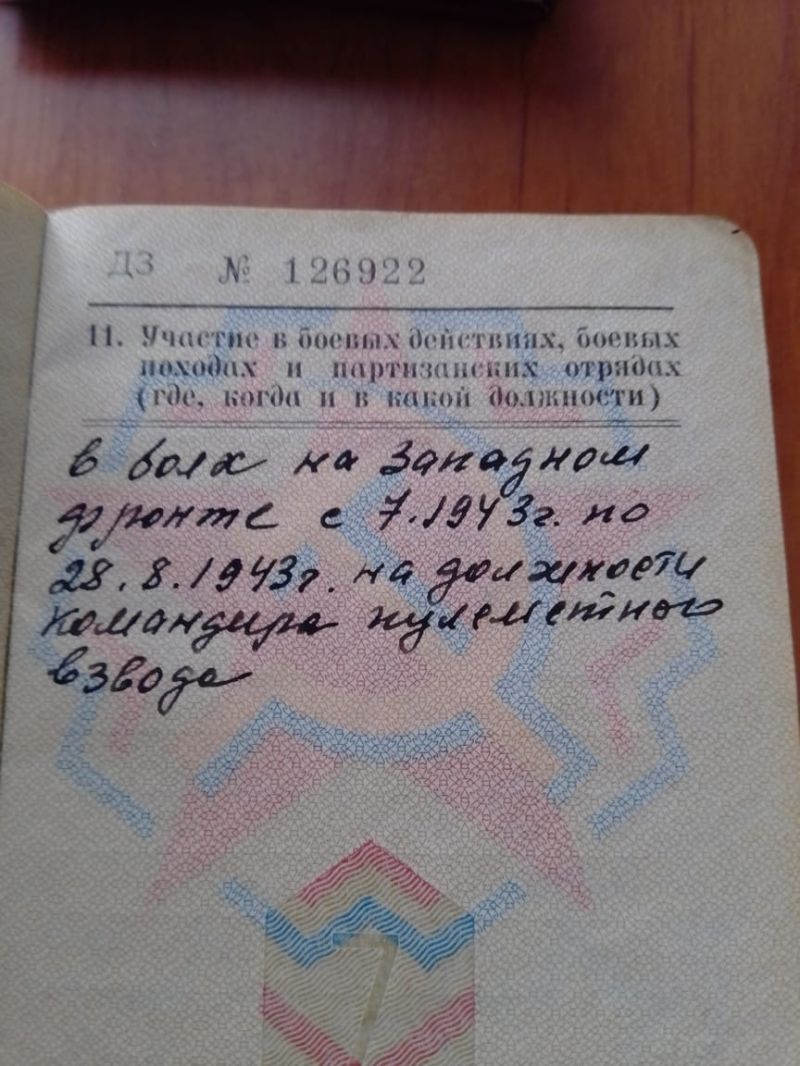 ДЗ № 126922
11. Участие в боевых действиях, боевых
походах и партизанских отрядах
(где, когда и в какой должности)
в боях на Западном
фронте с 7.1943г. по
28.8.1943г. на должности
командира пулеметного
взвода
7